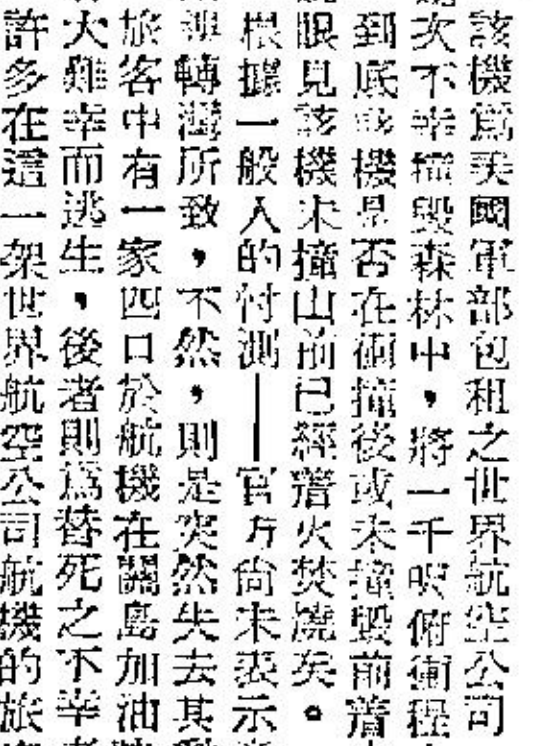 該機爲美國軍部包租之世界航空公司
次不幸撞毀森林中，將一千呎俯衝程
到底該機是否在碰撞後或未撞毀前着
眼見該機未撞山前已經着火焚燒矣。
根據一般人的忖測——官方尚未表示
轉灣所致，不然，則是突然失去其
旅客中有一家四口於航機在關島加油
大難幸而逃生，後者則爲替死之不幸者
許多在這一架世界航空公司航機的旅